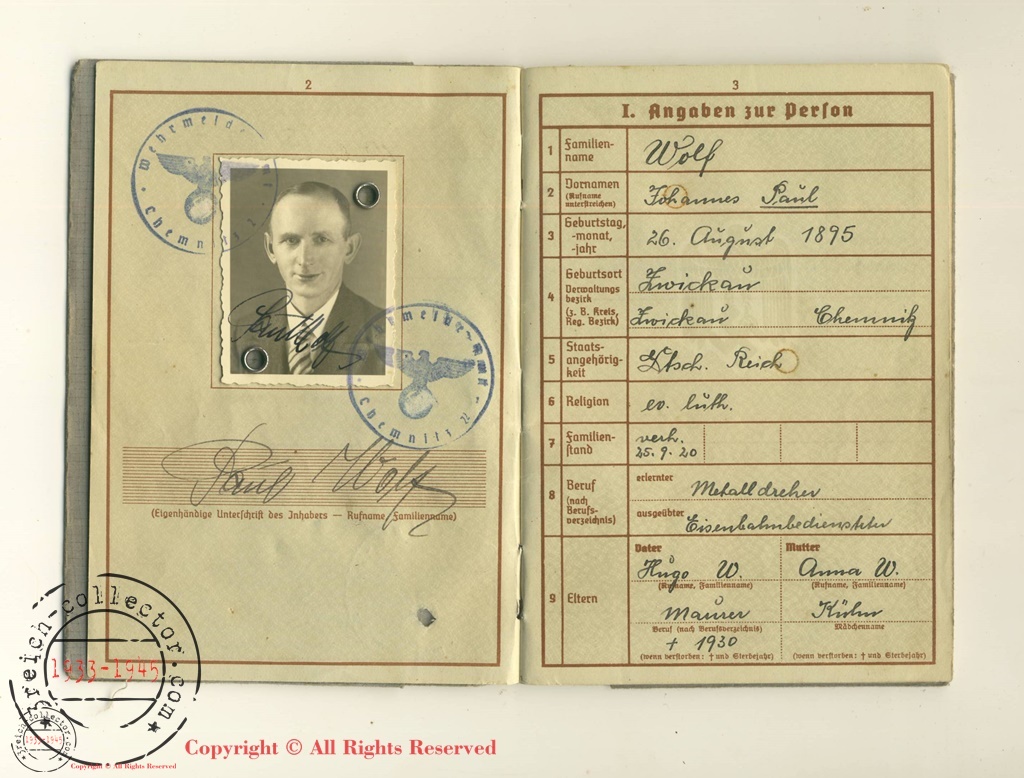 2
Wehrmelde
Chemnitz 2
Wehrmelde-Amt
Chemnitz 2
Paul Wolf
Paul Wolf
(Eigenhändige Unterschrift des Inhabers — Rufname, Familienname)
3
I. Angaben zur Person
1 Familien-
name
Wolf
2 Vornamen
(Rufname
unterstreichen)
Johannes Paul
3 Geburtstag,
-monat,
-jahr
26. August 1895
4 Geburtsort
Verwaltungs
bezirk
(z. B. Kreis,
Reg. Bezirk)
Zwickau
Zwickau Chemnitz
5 Staats-
angehörig-
keit
Dtsch. Reich
6 Religion
ev. luth.
7 Familien-
stand
verh.
25.9.20
8 Beruf
(nach
Berufs-
verzeichnis)
erlernter
Metalldreher
ausgeübter
Eisenbahnbediensteter
9 Eltern
Vater
Hugo W.
(Rufname, Familienname)
Maurer
Beruf (nach Berufsverzeichnis)
† 1930
(wenn verstorben: † und Sterbejahr)
Mutter
Anna W.
(Rufname, Familienname)
Kühn
Mädchenname
(wenn verstorben: † und Sterbejahr)
3reich-collector.com
1933-1945
3reich-collector.com
1933-1945
Copyright © All Rights Reserved
Copyright © All Rights Reserved